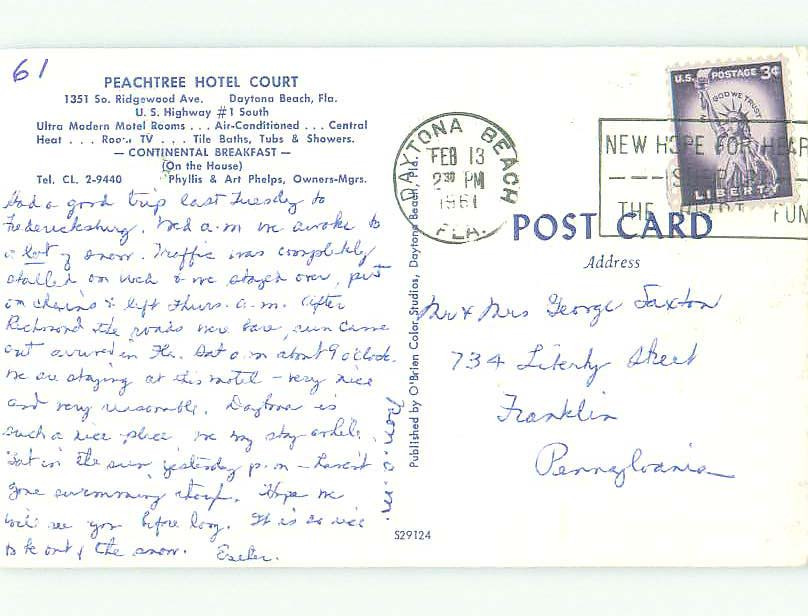 61
PEACHTREE HOTEL COURT
1351 So. Ridgewood Ave. Daytona Beach, Fla.
U. S. Highway #1 South
Ultra Modern Motel Rooms . . . Air-Conditioned . . . Central
Heat . . . Room TV . . . Tile Baths, Tubs & Showers.
— CONTINENTAL BREAKFAST —
(On the House)
Tel. CL. 2-9440 Phyllis & Art Phelps, Owners-Mgrs.
Had a good trip last Tuesday to
Fredericksburg. Wed a.m we awoke to
a lot of snow. Traffic was completely
stalled on Wed & we stayed over, put
on chains & left Thurs. a.m. After
Richmond the roads were bare, sun came
out arrived in Fla. Sat a.m about 9 o'clock.
We are staying at this motel - very nice
and very reasonable. Daytona is
such a nice place, we may stay awhile.
Sat in the sun yesterday p.m - haven't
gone swimming though. Hope we
will see you before long. It is so nice
to be out of the snow.
Mon. a.m.
Published by O'Brien Color Studios, Daytona Beach, Fla.
S29124
DAYTONA BEACH
FEB 13
2 30 PM
1961
FLA.
NEW HOPE FOR HEAR
THE HEART FUN
U.S. POSTAGE 3¢
IN GOD WE TRUST
LIBERTY
POST CARD
Address
Mr & Mrs George Saxton
734 Liberty Street
Franklin
Pennsylvania